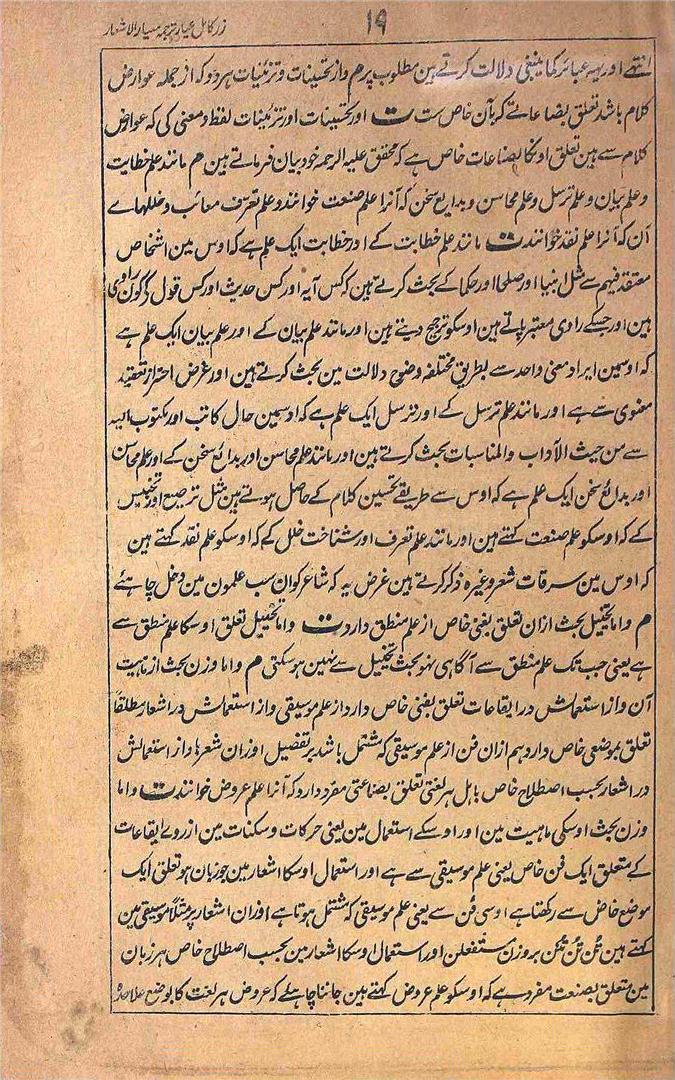 زر کامل عیار ترجمہ معیار الاشعار
۱۹
انتہے اور یہہ عبائر کما ینبغی دلالت کرتے ہین مطلوب پر م و از تحسینات و تزئینات ہر دو کہ از جملہ عوارض
کلام باشد تعلق بصناعاتے کہ بآن خاص ست ت اور تحسینات اور تزئینات لفظ و معنی کی کہ عوارض
کلام سے ہین تعلق اونکا بصناعات خاص ہے کہ محقق علیہ الرحمہ خود بیان فرماتے ہین م مانند علم خطابت
و علم بیان و علم ترسل و علم محاسن و بدایع سخن کہ آنرا علم صنعت خوانند و علم تعرف معائب و خللہاے
آن کہ آنرا علم نقد خوانند ت مانند علم خطابت کے اور خطابت ایک علم ہے کہ اوس مین اشخاص
معتقد فیہم سے مثل انبیا اور صلحا اور حکما کے بحث کرتے ہین کہ کس آیہ اور کس حدیث اور کس قول کا کون راوی
ہین اور جسکے راوی معتبر پاتے ہین اوسکو ترجیح دیتے ہین اور مانند علم بیان کے اور علم بیان ایک علم ہے
کہ اوسمین ایراد معنی واحد سے بطریق مختلفہ وضوح دلالت مین بحث کرتے ہین اور غرض احتراز تعقید
معنوی سے ہے اور مانند علم ترسل کے اور ترسل ایک علم ہے کہ اوسمین حال کاتب اور مکتوب الیہ
سے من حیث الآداب والمناسبات بحث کرتے ہین اور مانند علم محاسن اور بدائع سخن کے اور علم محاسن
اور بدائع سخن ایک علم ہے کہ اوس سے طریقے تحسین کلام کے حاصل ہوتے ہین مثل ترصیع اور تجنیس
کے کہ اوسکو علم صنعت کہتے ہین اور مانند علم تعرف اور شناخت خلل کے کہ اوسکو علم نقد کہتے ہین
کہ اوس مین سرقات شعر وغیرہ ذکر کرتے ہین غرض یہ کہ شاعر کو ان سب علمون مین دخل چاہئے
م و اما تخییل بحث ازان تعلق بفنی خاص از علم منطق دارد ت و اما تخییل تعلق اوسکا علم منطق سے
ہے یعنی جب تک علم منطق سے آگاہی نہو بحث تخییل سے نہین ہو سکتی م و اما وزن بحث از ماہیت
آن و از استعمالش در ایقاعات تعلق بفنی خاص دارد از علم موسیقی و از استعمالش در اشعار مطلقا
تعلق بموضعی خاص دارد ہم ازان فن از علم موسیقی کہ مشتمل باشد بر تفصیل اوزان شعرہا و از استعمالش
در اشعار بحسب اصطلاح خاص باہل ہر لغتی تعلق بصناعتی مفرد دارد کہ آنرا علم عروض خوانند ت و اما
وزن بحث اوسکی ماہیت مین اور اوسکے استعمال مین یعنی حرکات و سکنات مین از روے ایقاعات
کے متعلق ایک فن خاص یعنی علم موسیقی سے ہے اور استعمال اوسکا اشعار مین جو زبان ہو تعلق ایک
موضع خاص سے رکھتا ہے اوسی فن سے یعنی علم موسیقی کہ مشتمل ہوتا ہے اوزان اشعار پر مثلاً موسیقی مین
کہتے ہین تُن تُن تُنُن بر وزن مستفعلن اور استعمال اوسکا اشعار مین بحسب اصطلاح خاص ہر زبان
مین متعلق بصنعت مفرد ہے کہ اوسکو علم عروض کہتے ہین جاننا چاہئے کہ عروض ہر لغت کا بوضع علاحدہ